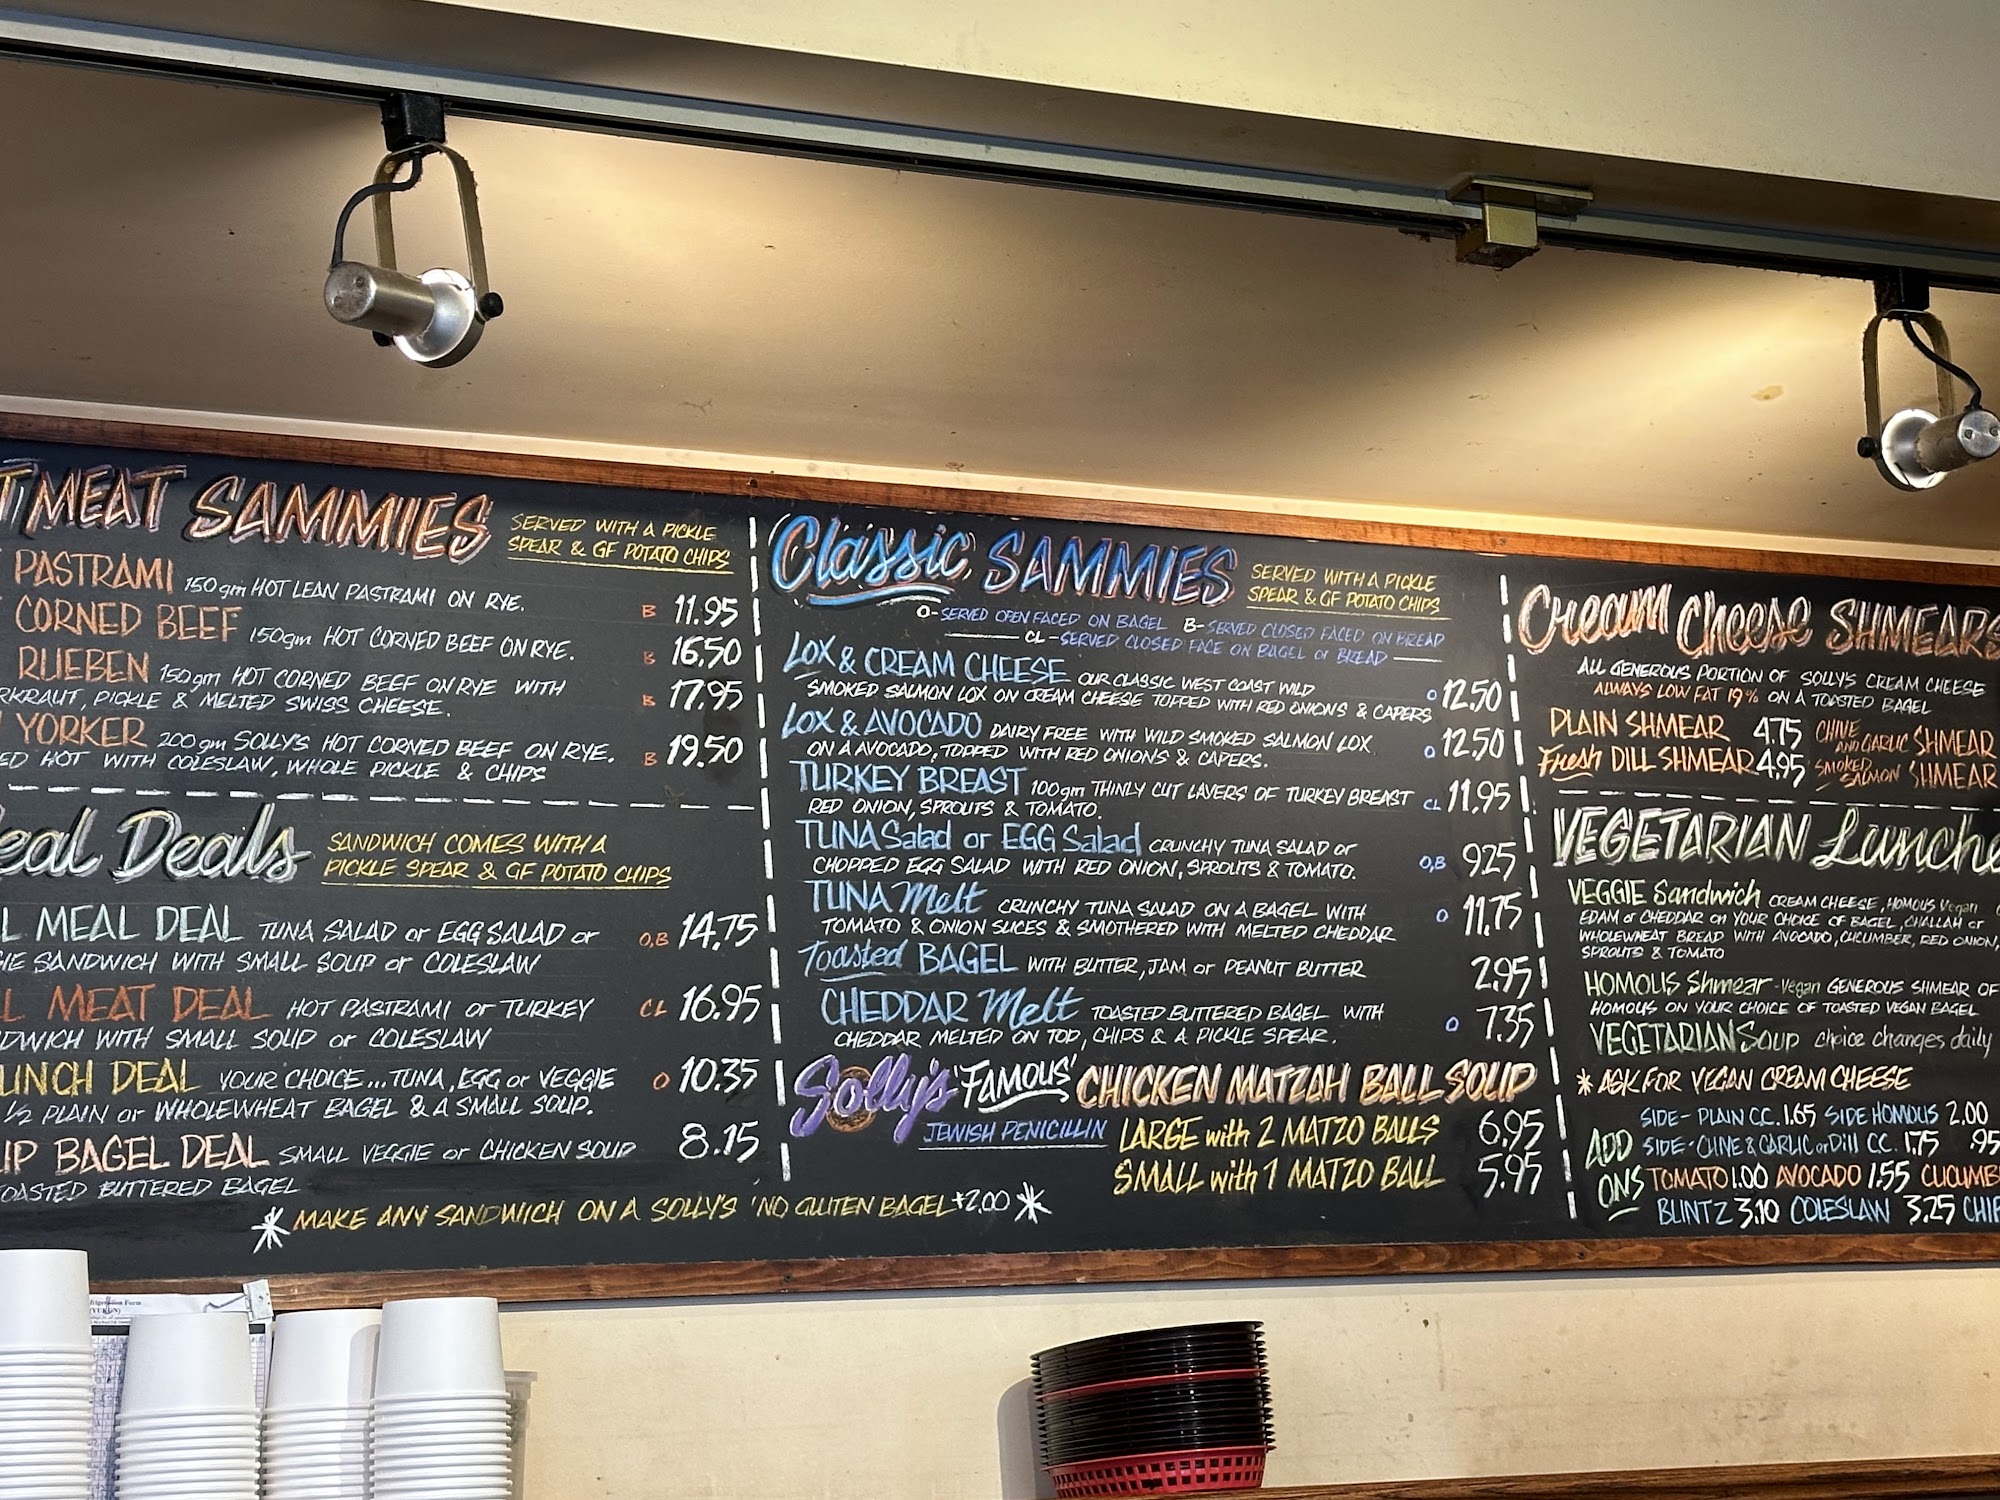 MEAT SAMMIES
SERVED WITH A PICKLE
SPEAR & GF POTATO CHIPS
PASTRAMI 150gm HOT LEAN PASTRAMI ON RYE. B 11.95
CORNED BEEF 150gm HOT CORNED BEEF ON RYE. B 16.50
RUEBEN 150gm HOT CORNED BEEF ON RYE WITH B 17.95
RKRAUT, PICKLE & MELTED SWISS CHEESE.
YORKER 200gm SOLLY'S HOT CORNED BEEF ON RYE. B 19.50
ED HOT WITH COLESLAW, WHOLE PICKLE & CHIPS
eal Deals
SANDWICH COMES WITH A
PICKLE SPEAR & GF POTATO CHIPS
L MEAL DEAL TUNA SALAD or EGG SALAD or O,B 14.75
GIE SANDWICH WITH SMALL SOUP or COLESLAW
L MEAT DEAL HOT PASTRAMI or TURKEY CL 16.95
DWICH WITH SMALL SOUP or COLESLAW
UNCH DEAL YOUR CHOICE...TUNA, EGG or VEGGIE O 10.35
1/2 PLAIN or WHOLEWHEAT BAGEL & A SMALL SOUP.
UP BAGEL DEAL SMALL VEGGIE or CHICKEN SOUP 8.15
TOASTED BUTTERED BAGEL
* MAKE ANY SANDWICH ON A SOLLY'S 'NO GLUTEN BAGEL +2.00 *
Classic SAMMIES
SERVED WITH A PICKLE
SPEAR & GF POTATO CHIPS
O-SERVED OPEN FACED ON BAGEL B-SERVED CLOSED FACED ON BREAD
CL-SERVED CLOSED FACE ON BAGEL or BREAD
LOX & CREAM CHEESE OUR CLASSIC WEST COAST WILD
SMOKED SALMON LOX ON CREAM CHEESE TOPPED WITH RED ONIONS & CAPERS O 12.50
LOX & AVOCADO DAIRY FREE WITH WILD SMOKED SALMON LOX
ON A AVOCADO, TOPPED WITH RED ONIONS & CAPERS. O 12.50
TURKEY BREAST 100gm THINLY CUT LAYERS OF TURKEY BREAST CL 11.95
RED ONION, SPROUTS & TOMATO.
TUNA Salad or EGG Salad CRUNCHY TUNA SALAD or
CHOPPED EGG SALAD WITH RED ONION, SPROUTS & TOMATO. O,B 9.25
TUNA Melt CRUNCHY TUNA SALAD ON A BAGEL WITH O 11.75
TOMATO & ONION SLICES & SMOTHERED WITH MELTED CHEDDAR
Toasted BAGEL WITH BUTTER, JAM or PEANUT BUTTER 2.95
CHEDDAR Melt TOASTED BUTTERED BAGEL WITH O 7.35
CHEDDAR MELTED ON TOP, CHIPS & A PICKLE SPEAR.
Solly's 'FAMOUS' CHICKEN MATZAH BALL SOUP
JEWISH PENICILLIN LARGE with 2 MATZO BALLS 6.95
SMALL with 1 MATZO BALL 5.95
Cream Cheese SHMEARS
ALL GENEROUS PORTION OF SOLLY'S CREAM CHEESE
ALWAYS LOW FAT 19% ON A TOASTED BAGEL
PLAIN SHMEAR 4.75 CHIVE AND GARLIC SHMEAR
Fresh DILL SHMEAR 4.95 SMOKED SALMON SHMEAR
VEGETARIAN Lunche
VEGGIE Sandwich CREAM CHEESE, HOMOUS Vegan
EDAM or CHEDDAR on YOUR CHOICE OF BAGEL, CHALLAH or
WHOLEWHEAT BREAD WITH AVOCADO, CUCUMBER, RED ONION,
SPROUTS & TOMATO
HOMOUS Shmear - Vegan GENEROUS SHMEAR OF
HOMOUS ON YOUR CHOICE OF TOASTED VEGAN BAGEL
VEGETARIAN Soup choice changes daily
* ASK FOR VEGAN CREAM CHEESE
ADD ONS
SIDE- PLAIN C.C. 1.65 SIDE HOMOUS 2.00
SIDE- CHIVE & GARLIC or Dill C.C. 1.75 .95
TOMATO 1.00 AVOCADO 1.55 CUCUMB
BLINTZ 3.10 COLESLAW 3.25 CHIP